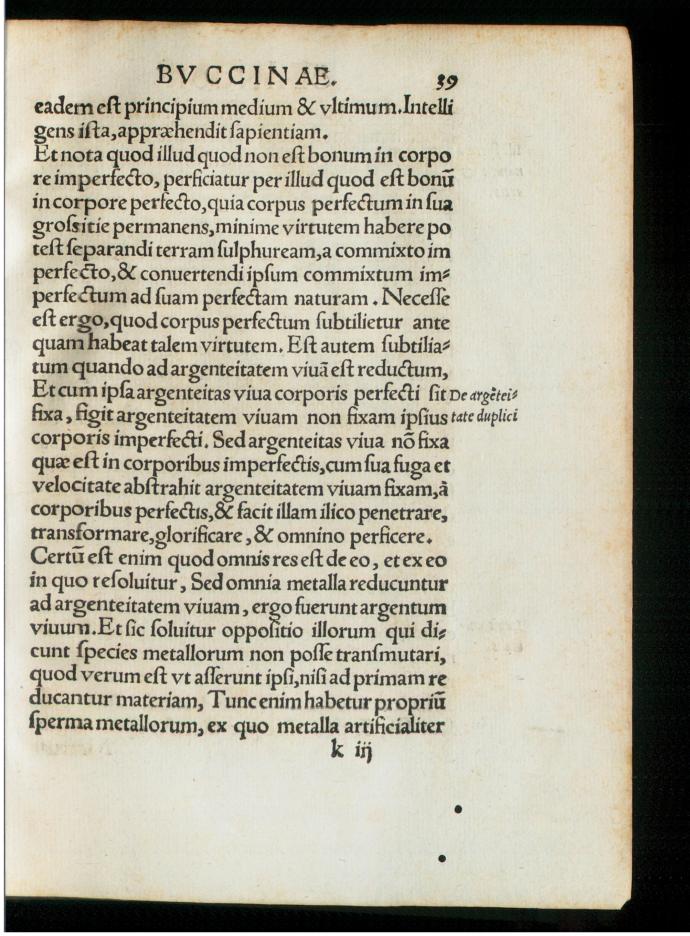 BVCCINAE. 39
eadem est principium medium & vltimum. Intelli
gens ista, appræhendit sapientiam.
Et nota quod illud quod non est bonum in corpo
re imperfecto, perficiatur per illud quod est bonū
in corpore perfecto, quia corpus perfectum in sua
grossitie permanens, minime virtutem habere po
test separandi terram sulphuream, a commixto im
perfecto, & conuertendi ipsum commixtum im⸗
perfectum ad suam perfectam naturam. Necesse
est ergo, quod corpus perfectum subtilietur ante
quam habeat talem virtutem. Est autem subtilia⸗
tum quando ad argenteitatem viuā est reductum,
Et cum ipsa argenteitas viua corporis perfecti sit
fixa, figit argenteitatem viuam non fixam ipsius
corporis imperfecti. Sed argenteitas viua nō fixa
quæ est in corporibus imperfectis, cum sua fuga et
velocitate abstrahit argenteitatem viuam fixam, à
corporibus perfectis, & facit illam ilico penetrare,
transformare, glorificare, & omnino perficere.
Certū est enim quod omnis res est de eo, et ex eo
in quo resoluitur, Sed omnia metalla reducuntur
ad argenteitatem viuam, ergo fuerunt argentum
viuum. Et sic soluitur oppositio illorum qui di⸗
cunt species metallorum non posse transmutari,
quod verum est vt asserunt ipsi, nisi ad primam re
ducantur materiam, Tunc enim habetur propriū
sperma metallorum, ex quo metalla artificialiter
k iij
De argētei⸗
tate duplici